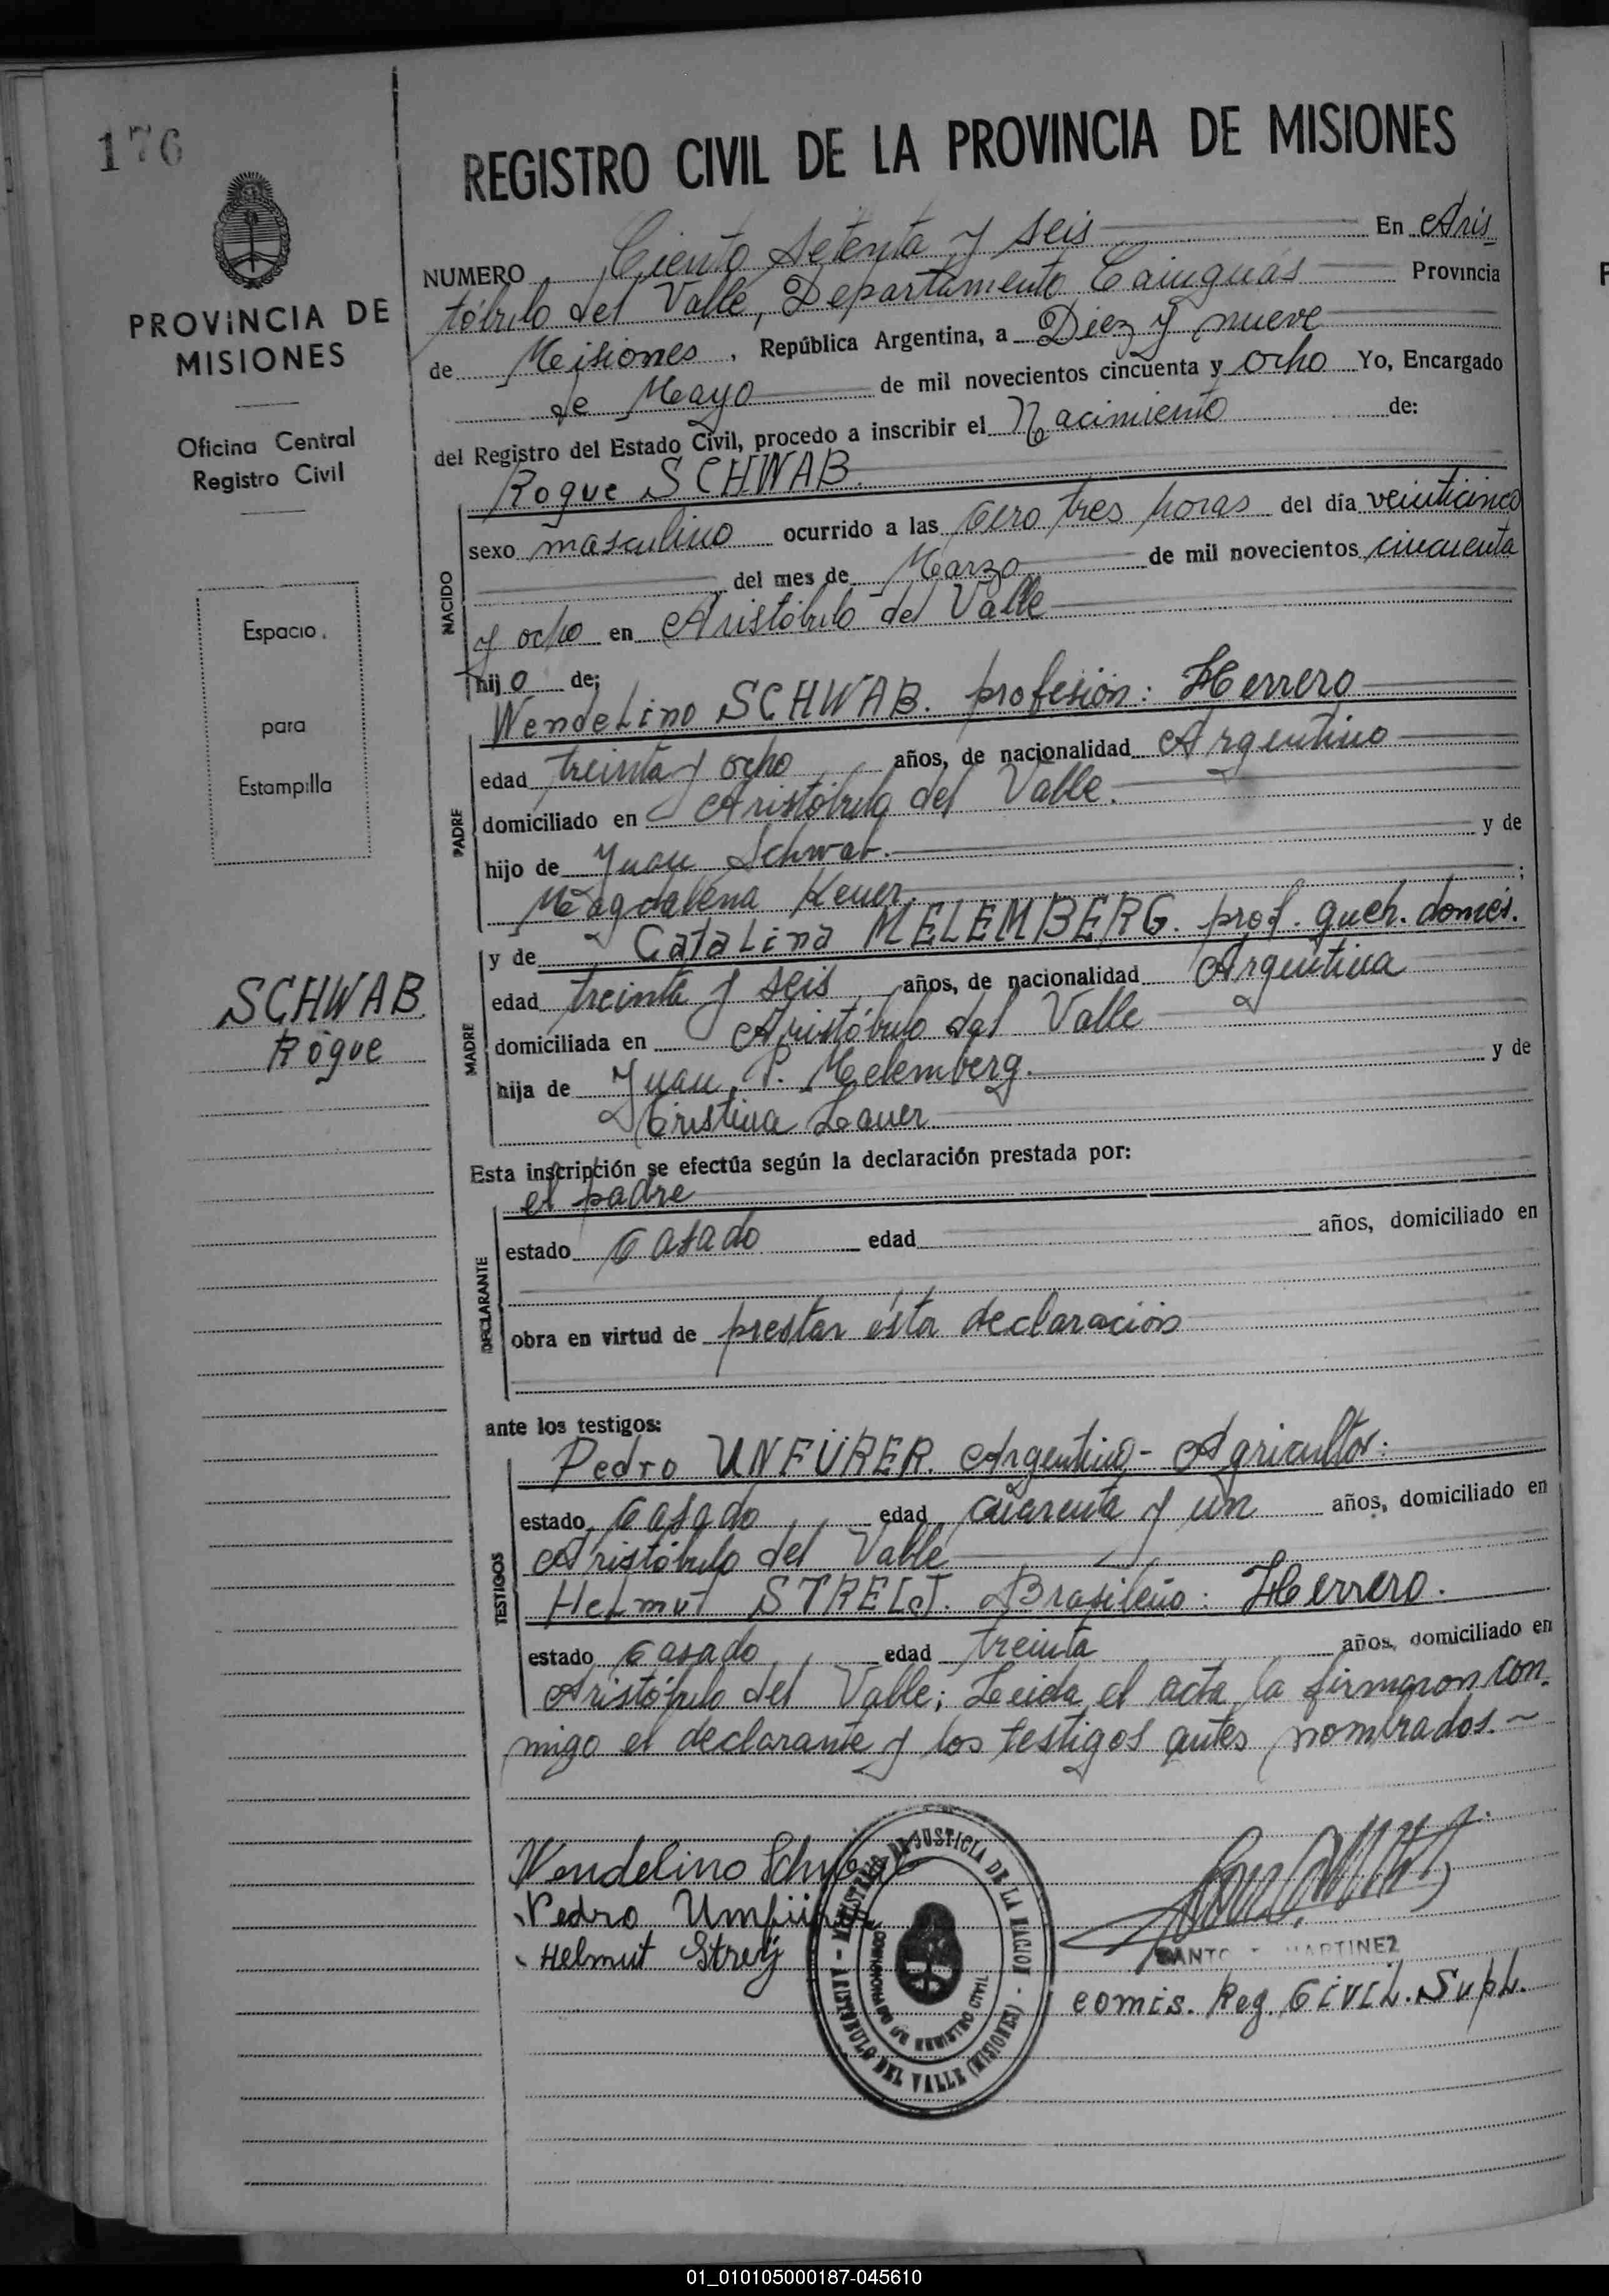 176
PROVINCIA DE
MISIONES
Oficina Central
Registro Civil
Espacio
para
Estampilla
SCHWAB
Roque
REGISTRO CIVIL DE LA PROVINCIA DE MISIONES
NUMERO Ciento Setenta y seis En Aris
tóbulo del Valle, Departamento Cainguás Provincia
de Misiones, República Argentina, a Diez y nueve
de Mayo de mil novecientos cincuenta y ocho Yo, Encargado
del Registro del Estado Civil, procedo a inscribir el Nacimiento de:
Roque SCHWAB.
NACIDO
sexo masculino ocurrido a las Cero tres horas del día veinticinco
del mes de Marzo de mil novecientos cincuenta
y ocho en Aristóbulo del Valle
hijo de;
Wendelino SCHWAB. profesión: Herrero
PADRE
edad treinta y ocho años, de nacionalidad Argentino
domiciliado en Aristóbulo del Valle.
hijo de Juan Schwab. y de
Magdalena Keuer ;
y de Catalina MELEMBERG. prof. queh. domés.
MADRE
edad treinta y seis años, de nacionalidad Argentina
domiciliada en Aristóbulo del Valle
hija de Juan P. Melemberg. y de
Cristina Lauer
Esta inscripción se efectúa según la declaración prestada por:
el padre
DECLARANTE
estado Casado edad años, domiciliado en
obra en virtud de prestar ésta declaración
ante los testigos:
Pedro UNFÜRER. Argentino - Agricultor.
TESTIGOS
estado Casado edad cuarenta y un años, domiciliado en
Aristóbulo del Valle
Helmut Brasileño: Herrero.
estado Casado edad treinta años, domiciliado en
Aristóbulo del Valle; Leida el acta la firmaron con
migo el declarante y los testigos antes nombrados.~
Wendelino Schwab
Pedro
Helmut Strey
MINISTERIO DE JUSTICIA DE LA NACION - ARISTOBULO DEL VALLE (MISIONES) -
REGISTRO CIVIL
MARTINEZ
comis. Reg. Civil. Supl.
01_010105000187-045610